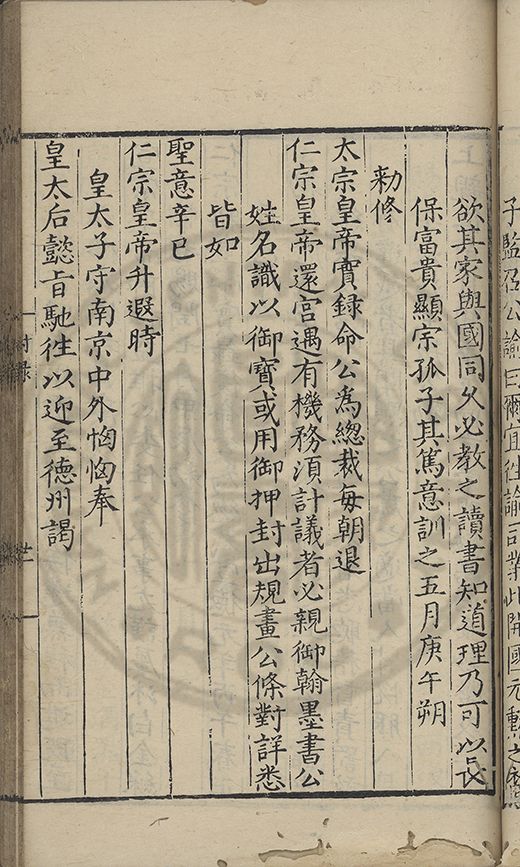 子監召公諭曰爾宜往諭司業此開國元勲之裔
欲其家與國同久必教之讀書知道理乃可以長
保富貴顯宗孤子其篤意訓之五月庚午朔
勑修
太宗皇帝實録命公爲總裁每朝退
仁宗皇帝還宮遇有機務湏計議者必親御翰墨書公
姓名識以御寳或用御押封出規畫公條對詳悉
皆如
聖意辛巳
仁宗皇帝升遐時
皇太子守南京中外恟恟奉
皇太后懿旨馳徃以迎至德州謁
附録
廿一